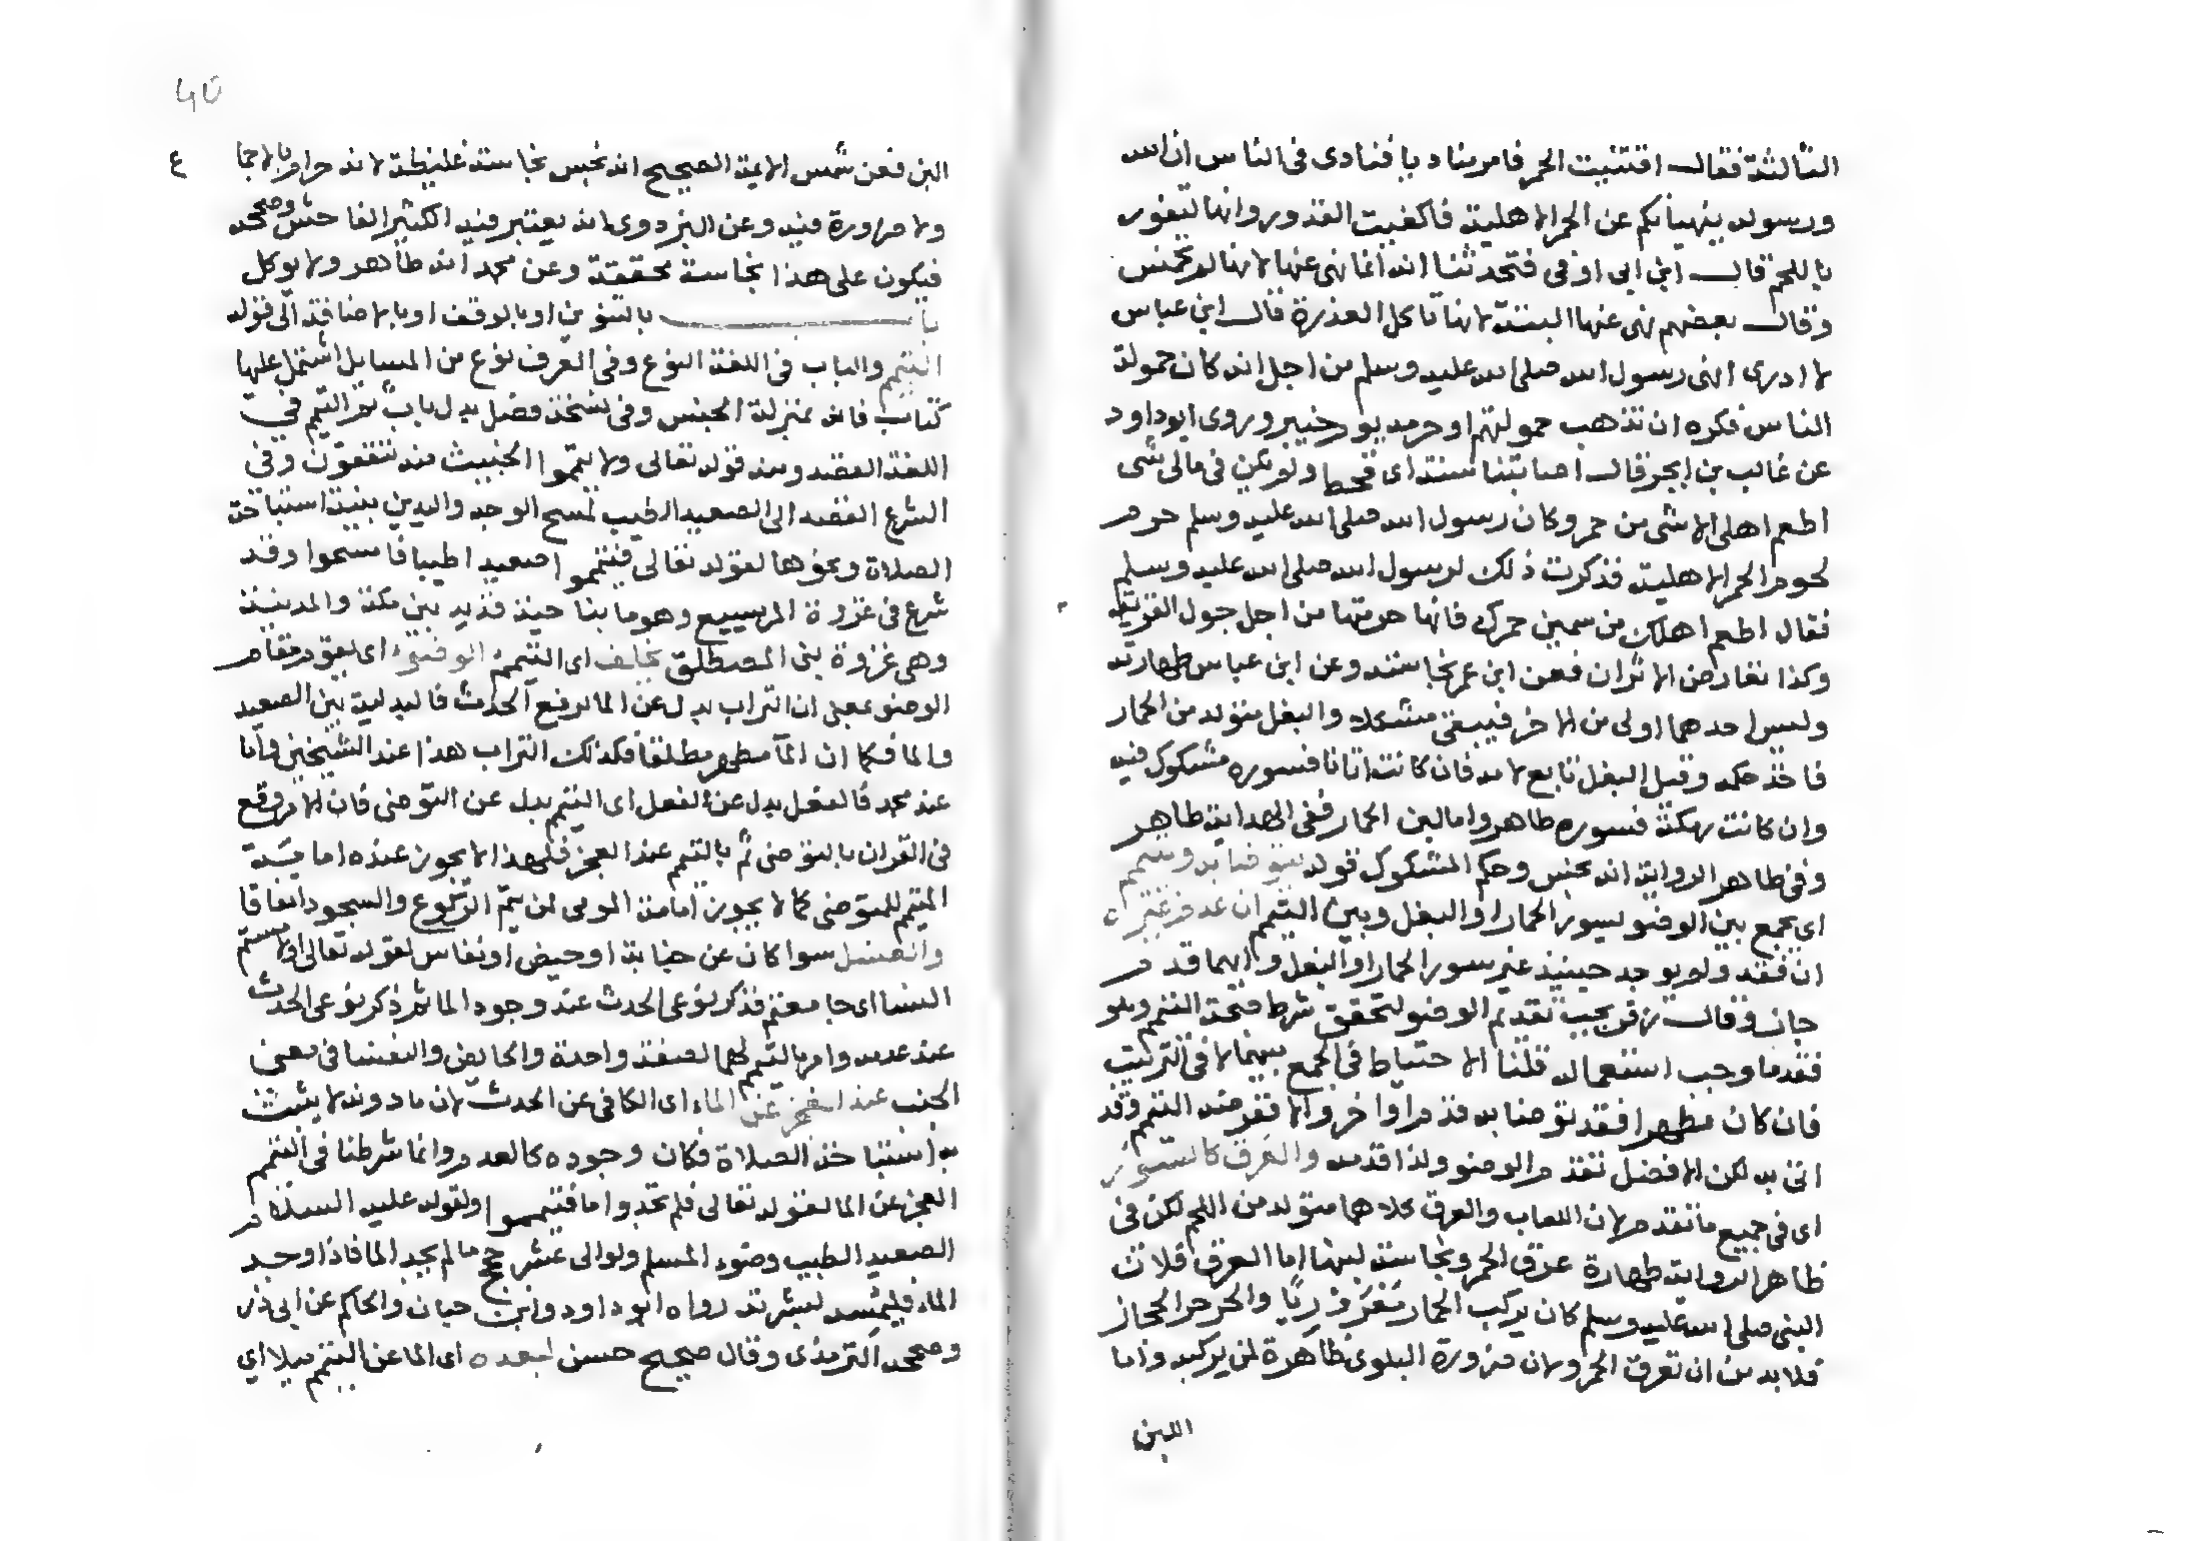 الثالثة فقال افنيت الحمر فامر مناديا فنادى فى الناس ان الله
ورسوله ينهيانكم عن الحمر الاهلية فاكفيت القدور وانها لتفور
باللحم قال ابن ابى اوفى فتحدثنا انه انما نهى عنها لانها لم تخمس
وقال بعضهم نهى عنها البتة لانها تاكل العذرة قال ابن عباس
لا ادرى انهى رسول الله صلى الله عليه وسلم من اجل انه كان حمولة
الناس فكره ان تذهب حمولتهم او حرمه يوم خيبر وروى ابو داود
عن غالب بن ابجر قال اصابتنا سنة اى قحط ولم يكن فى مالى شى
اطعم اهلى الا شى من حمر وكان رسول الله صلى الله عليه وسلم حرم
لحوم الحمر الاهلية فذكرت ذلك لرسول الله صلى الله عليه وسلم
فقال اطعم اهلك من سمين حمرك فانما حرمتها من اجل جول القرية
وكذا تعارض الاثران فعن ابن عمر نجاسته وعن ابن عباس طهارته
وليس احدهما اولى من الاخر فيبقى مشكلا والبغل متولد من الحمار
فاخذ حكمه وقيل البغل تابع لامه فان كانت اتانا فسوره مشكوك فيه
وان كانت رمكة فسوره طاهر واما لبن الحمار ففى الهداية طاهر
وفى ظاهر الرواية انه نجس وحكم المشكوك قوله يتوضا به ويتيمم
اى يجمع بين الوضو بسور الحمار او البغل وبين التيمم ان عدم غيره
ان فقد ولم يوجد حينيذ غير سور الحمار او البغل وايهما قدم
جاز وقال زفر يجب تقديم الوضو لتحقق شرط صحة التيمم وهو
فقد ما وجب استعماله قلنا الاحتياط فى الجمع بينهما لا فى الترتيب
فان كان مطهرا فقد توضا به قدم او اخر والا ففرضه التيمم وقد
اتى به لكن الافضل تقدم الوضو ولذا قدمه والعرق كالسور
اى فى جميع ما تقدم لان اللعاب والعرق كلاهما متولد من اللحم لكن فى
ظاهر الرواية طهارة عرق الحمر ونجاسة لبنها اما العرق فلان
النبى صلى الله عليه وسلم كان يركب الحمار والحر حر الحجاز
فلا بد من ان تعرق الحمر ولان ضرورة البلوى ظاهرة لمن يركبه واما
اللبن
40
البن فعن شمس الايمة الصحيح انه نجس نجاسة غليظة لانه حرام بالاجماع
ولا ضرورة فيه وعن البزدوى انه يعتبر فيه الكثير الفاحش وصححه
فيكون على هذا نجاسة مخففة وعن محمد انه طاهر ولا يوكل
باب بالتنوين او بالوقف او بالاضافة الى قوله
التيمم والباب فى اللغة النوع وفى العرف نوع من المسايل اشتمل عليها
كتاب فانه بمنزلة الجنس وفى نسخة فصل بدل باب ثم التيمم فى
اللغة القصد ومنه قوله تعالى ولا تيمموا الخبيث منه تنفقون وفى
الشرع القصد الى الصعيد الطيب لمسح الوجه واليدين بنية استباحة
الصلاة ونحوها لقوله تعالى فتيمموا صعيدا طيبا فامسحوا وقد
شرع فى غزوة المريسيع وهو ما بناحية قديد بين مكة والمدينة
وهى غزوة بنى المصطلق يخلف اى التيمم الوضوء اى يقوم مقام
الوضو بمعنى ان التراب بدل عن الما لرفع الحدث فالبدلية بين الصعيد
والما فكما ان الما مطهر مطلقا فكذلك التراب هذا عند الشيخين واما
عند محمد فالفعل بدل عن الفعل اى التيمم بدل عن التوضى فان الامر وقع
فى القران بالتوضى ثم بالتيمم عند العجز فلهذا لا يجوز عنده امامة
المتيمم للمتوضى كما لا يجوز امامة المومى لمن يتم الركوع والسجود اتفاقا
والغسل سوا كان عن جنابة او حيض او نفاس لقوله تعالى او لامستم
النسا اى جامعتم فذكر نوعى الحدث عند وجود الما ثم ذكر نوعى الحدث
عند عدمه وامر بالتيمم لهما لصفة واحدة والحايض والنفسا فى معنى
الجنب عند العجز عن الماء اى الكافى عن الحدث لان ما دونه لا يثبت
به استباحة الصلاة فكان وجوده كالعدم وانما شرطنا فى التيمم
العجز عن الما لقوله تعالى فلم تجدوا ما فتيمموا ولقوله عليه السلام
الصعيد الطيب وضوء المسلم ولو الى عشر حجج ما لم يجد الما فاذا وجد
الماء فليمسه بشرته رواه ابو داود وابن حبان والحاكم عن ابى ذر
وصححه الترمذى وقال صحيح حسن لبعده اى الما عن المتيمم ميلا اى